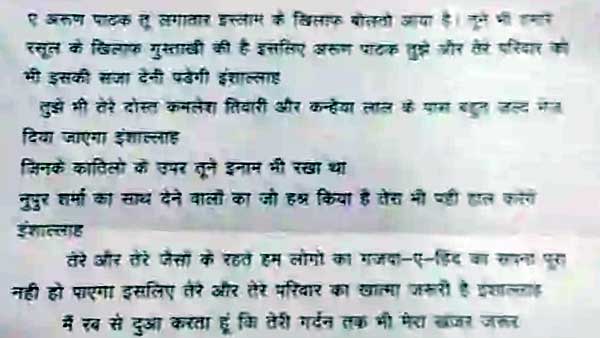 ए अरूण पाठक तू लगातार इस्लाम के खिलाफ बोलतो आया है। तूने भी हमारे
रसूल के खिलाफ गुस्ताखी की है इसलिए अरूण पाठक तुझे और तेरे परिवार को
भी इसकी सजा देनी पडेगी इंशाल्लाह
तुझे भी तेरे दोस्त कमलेश तिवारी और कन्हैया लाल के पास बहुत जल्द भेज
दिया जाएगा इंशाल्लाह
जिनके कातिलो के उपर तूने इनाम भी रखा था
नुपुर शर्मा का साथ देने वालों का जो हश्र किया है तेरा भी वही हाल करेंगे
इंशाल्लाह
तेरे और तेरे जैसों के रहते हम लोगो का गजवा-ए-हिंद का सपना पूरा
नही हो पाएगा इसलिए तेरे और तेरे परिवार का खात्मा जरूरी है इंशाल्लाह
मैं रब से दुआ करता हूं कि तेरी गर्दन तक भी मेरा खंजर जरूर